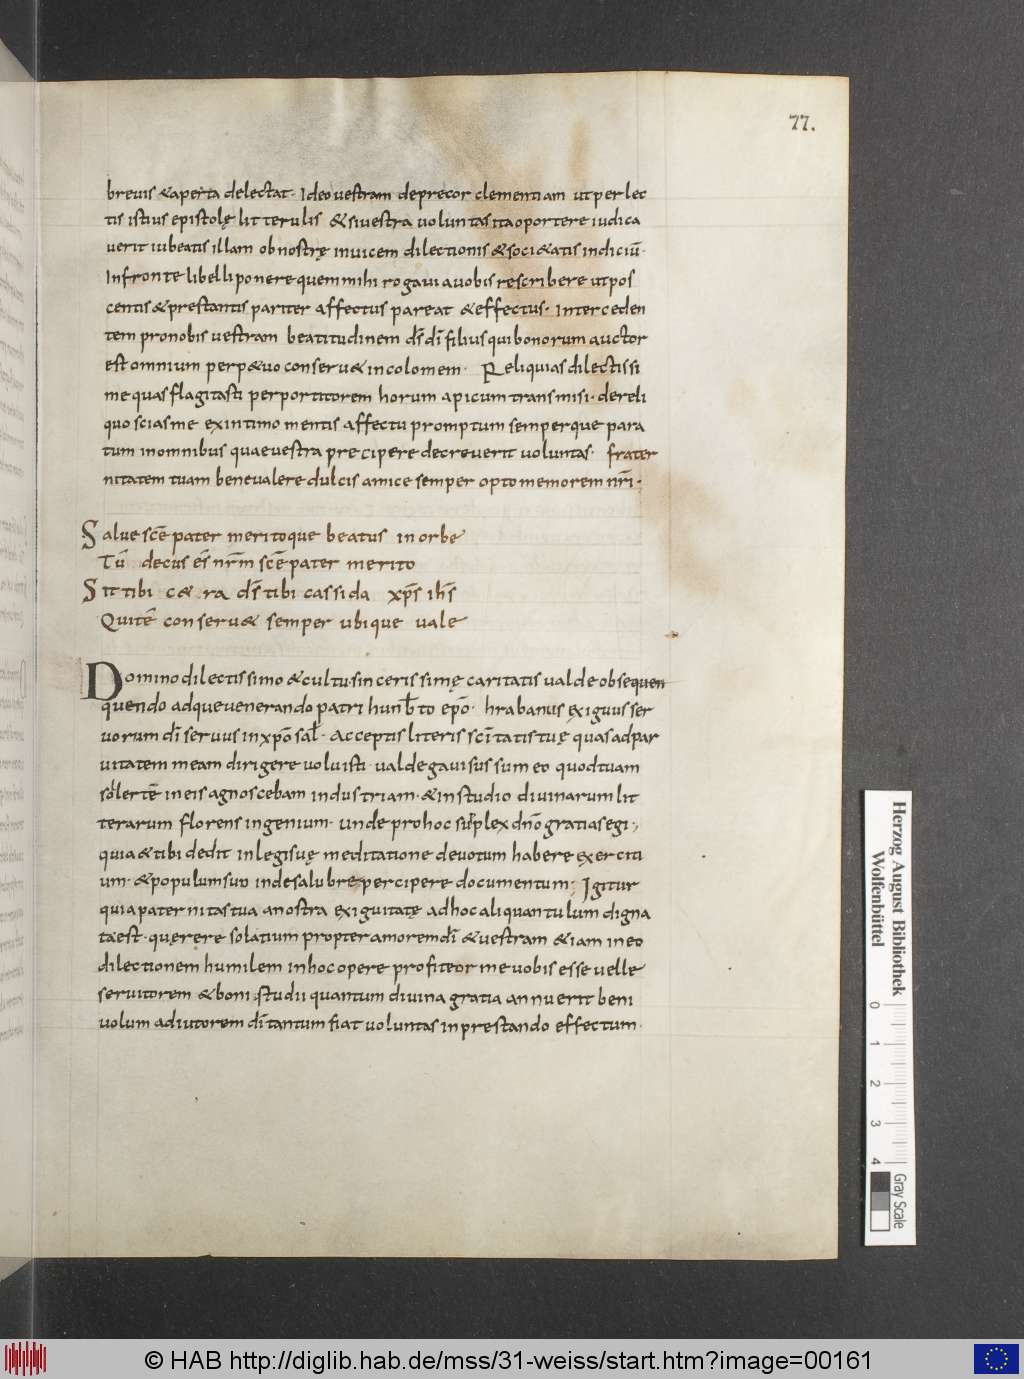 77.
brevis & aperta delectat. Ideo vestram deprecor clementiam ut perlec
tis istius epistolę litterulis & si vestra voluntas ita oportere iudica
verit iubeatis illam ob nostrę invicem dilectionis & soci&atis indiciū.
In fronte libelli ponere quem mihi rogavi a vobis rescribere ut pos
centis & prestantis pariter affectus pareat & effectus. Interceden
tem pro nobis vestram beatitudinem dn̄s dī filius qui bonorum auctor
est omnium perp&uo conseru& incolomem. Reliquias dilectissi
me quas flagitasti per portitorem horum apicum transmisi. de reli
quo scias me ex intimo mentis affectu promptum semperque para
tum in omnibus quae vestra precipere decreverit voluntas. frater
nitatem tuam bene valere dulcis amice semper opto memorem nr̄i.
Salve scē pater meritoque beatus in orbe
Tū decus es nr̄m scē pater merito
Sit tibi c&ra dn̄s tibi cassida xp̄s ih̄s
Qui te conseru& semper ubique vale
Domino dilectissimo & cultu sincerissimę caritatis valde obsequen
quendo adque venerando patri hunb̄to ep̄o. hrabanus exiguus ser
vorum dī servus in xp̄o sal̄. Acceptis literis sc̄itatis tuę quas ad par
vitatem meam dirigere voluisti. valde gavisus sum eo quod tuam
sollertē in eis agnoscebam industriam. & in studio divinarum lit
terarum florens ingenium. unde pro hoc supplex dn̄o gratias egi.,
quia & tibi dedit in legis suę meditatione devotum habere exerciti
um. & populum suū inde salubre percipere documentum; Igitur
quia paternitas tua a nostra exiguitatę ad hoc aliquantulum digna
ta est. quęrere solatium propter amorem dī & vestram &iam in eo
dilectionem humilem in hoc opere profiteor me vobis esse velle
servitorem & boni studii quantum divina gratia annuerit beni
volum adiutorem dī tantum fiat voluntas in prestando effectum.
Herzog August Bibliothek
Wolfenbüttel
0 1 2 3 4
Gray Scale
© HAB http://diglib.hab.de/mss/31-weiss/start.htm?image=00161